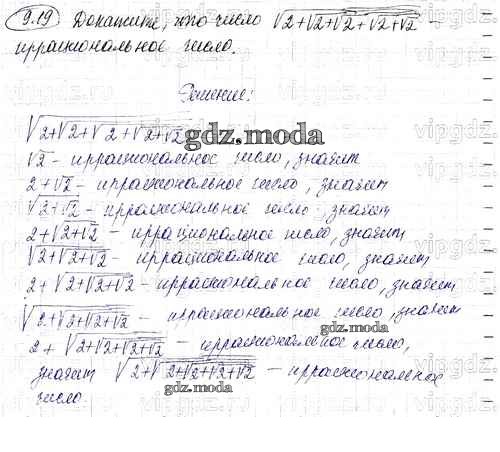 9.19 Докажите, что число √2+√2+√2+√2+√2
иррациональное число.
Решение:
√2+√2+√2+√2+√2
gdz.moda
√2 - иррациональное число, значит
2+√2 - иррациональное число, значит
√2+√2 - иррациональное число значит
2+√2+√2 - иррациональное число, значит
√2+√2+√2 - иррациональное число, значит
2+√2+√2+√2 - иррациональное число, значит
√2+√2+√2+√2 - иррациональное число, значит
gdz.moda
2+√2+√2+√2+√2 - иррациональное число,
значит √2+√2+√2+√2+√2 - иррациональное
gdz.moda
число.